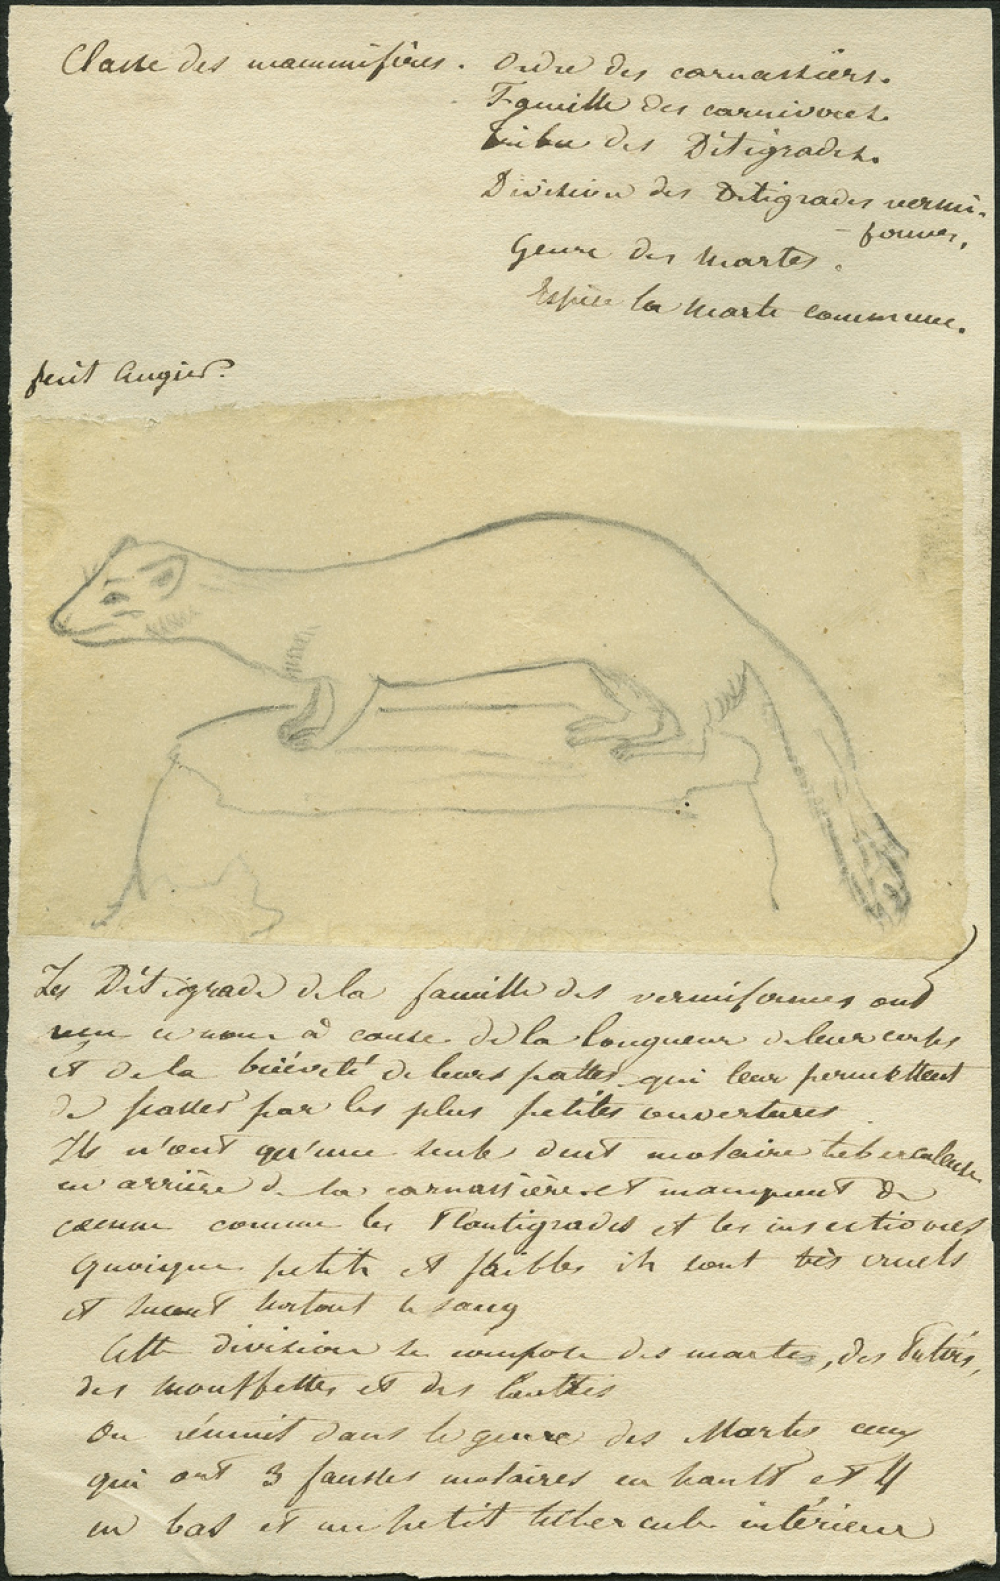 Classe des mammifères. Ordre des carnassiers.
Famille des carnivores.
Tribu des Ditigrades.
Division des Ditigrades vermi-
-formes.
Genre des Martes.
Espèce la Marte commune.
petit Augier.
Les Ditigrade de la famille des vermiformes ont
reçu ce nom à cause de la longueur de leur corps
et de la brièveté de leurs pattes qui leur permettent
de passer par les plus petites ouvertures
Ils n'ont qu'une seule dent molaire tuberculeuse
en arrière de la carnassière et manquent de
cœcum comme les Plantigrades et les insectivores
quoique petits et faibles ils sont très cruels
et sucent surtout le sang
Cette division se compose des martes, des Putois,
des mouffettes et des loutres
On réunit dans le genre des Martes ceux
qui ont 3 fausses molaires en hautt et 4
en bas et un petit tubercule intérieur